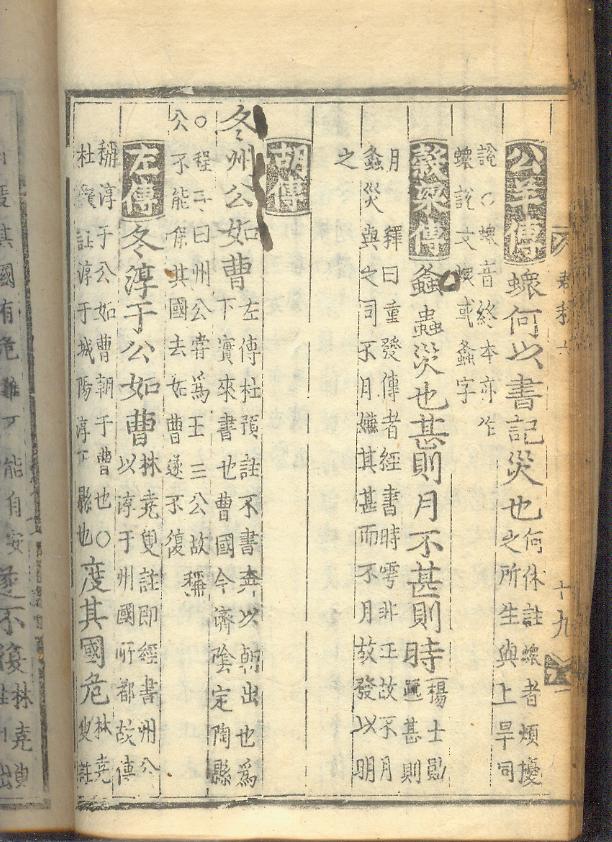 公羊傳 𧑄何以書記災也 何休註𧑄者煩擾
之所生與上旱同
說〇𧑄音終本亦作
𧑄說文𧑄或螽字
穀梁傳 螽蟲災也甚則月不甚則時 楊士勛
疏甚則
月 釋曰重發傳者經書時雩非正故不月
螽災與之同不月嫌其甚而不月故發以明
之
胡傳
冬州公如曹 左傳杜預註不書奔以朝出也爲
下實來書也曹國今濟陰定陶縣
〇程子曰州公嘗爲王三公故稱
公不能保其國去如曹遂不復
左傳 冬淳于公如曹 林堯叟註即經書州公
以淳于州國所都故傳
稱淳于公如曹朝于曹也〇
杜預註淳于城陽淳于縣也
度其國危 林堯
叟註
十九
其國有危難不能自安
遂不復 林堯叟